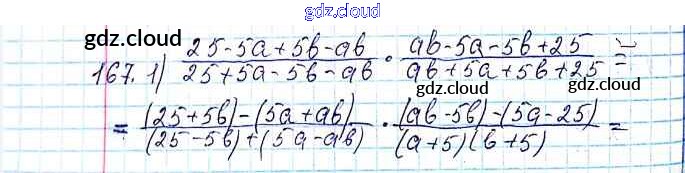 gdz.cloud
gdz.cloud
167. 1) (25-5a+5b-ab)/(25+5a-5b-ab) · (ab-5a-5b+25)/(ab+5a+5b+25) =
gdz.cloud
gdz.cloud
= ((25+5b)-(5a+ab))/((25-5b)+(5a-ab)) · ((ab-5b)-(5a-25))/((a+5)(b+5)) =